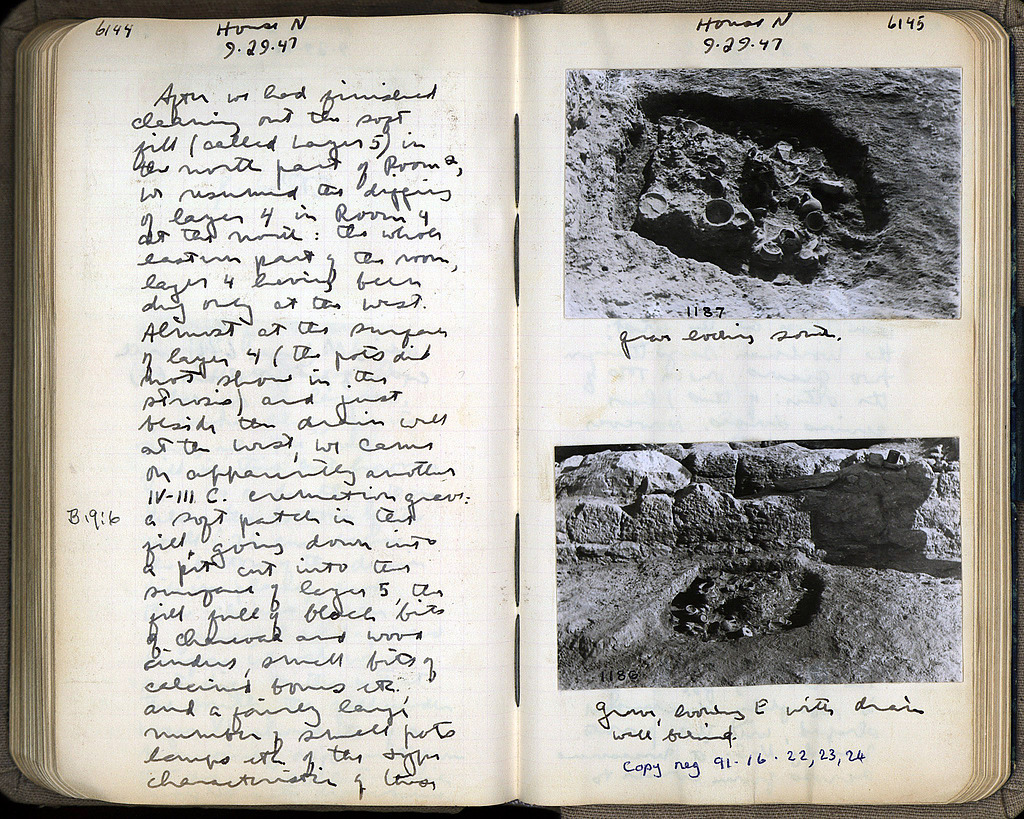 6144
House N
9.29.47
After we had finished
cleaning out the soft
fill (called Layer 5) in
the north part of Room 2,
we resumed the digging
of layer 4 in Room 4
at the north: the whole
eastern part of the room,
layer 4 having been
dug only at the west.
Almost at the surface
of layer 4 (the pots did
not show in the
strosis) and just
beside the drain wall
at the west, we came
on apparently another
IV-III C. cremation grave:
B 19:6
a soft patch in the
fill, going down into
a pit cut into the
surface of layer 5, the
fill full of black bits
of charcoal and wood
cinders, small bits of
calcined bones etc.
and a fairly large
number of small pots
lamps etc. of the types
characteristic of these
House N
9.29.47
6145
1187
grave looking south.
1186
grave, looking E with drain
wall behind.
Copy neg 91-16-22,23,24